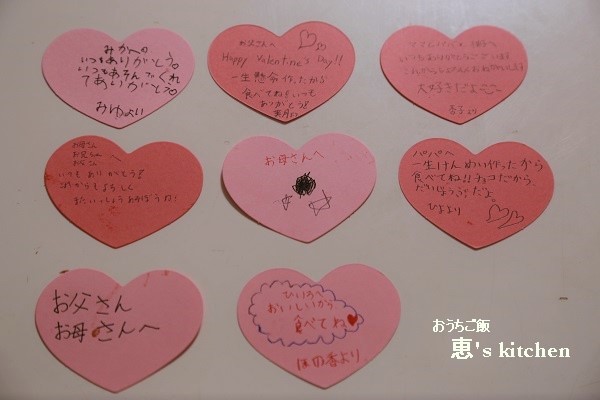 みかへ
いつもありがとう。
いつもあそんでくれ
てありがとう。
みゆより
お父さんへ
Happy Valentine's Day!!
一生懸命作ったから
食べてね!!いつも
ありがとう!
いつもありがとうございます
大好きだよ
香子より
お母さん
お兄さん
いつもありがとう!
これからもよろしく
またいっしょうあそぼうね!
お母さんへ
パパへ
一生けんめい作ったから
食べてね!!チョコだから
だいじょうぶだよ。
ひなより
お父さん
お母さんへ
おいしいから
食べてね
ほの香より
おうちご飯
恵's kitchen